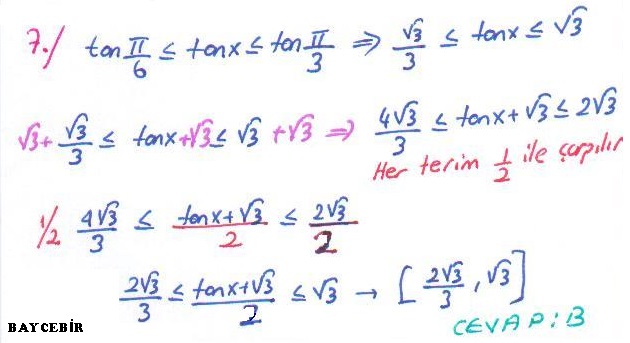 7./ tan π/6 ≤ tanx ≤ tan π/3 ⇒ √3/3 ≤ tanx ≤ √3
√3 + √3/3 ≤ tanx + √3 ≤ √3 + √3 ⇒ 4√3/3 ≤ tanx + √3 ≤ 2√3
Her terim 1/2 ile çarpılır
1/2 4√3/3 ≤ tanx + √3/2 ≤ 2√3/2
2√3/3 ≤ tanx + √3/2 ≤ √3 → [2√3/3, √3]
CEVAP : B
BAY CEBİR